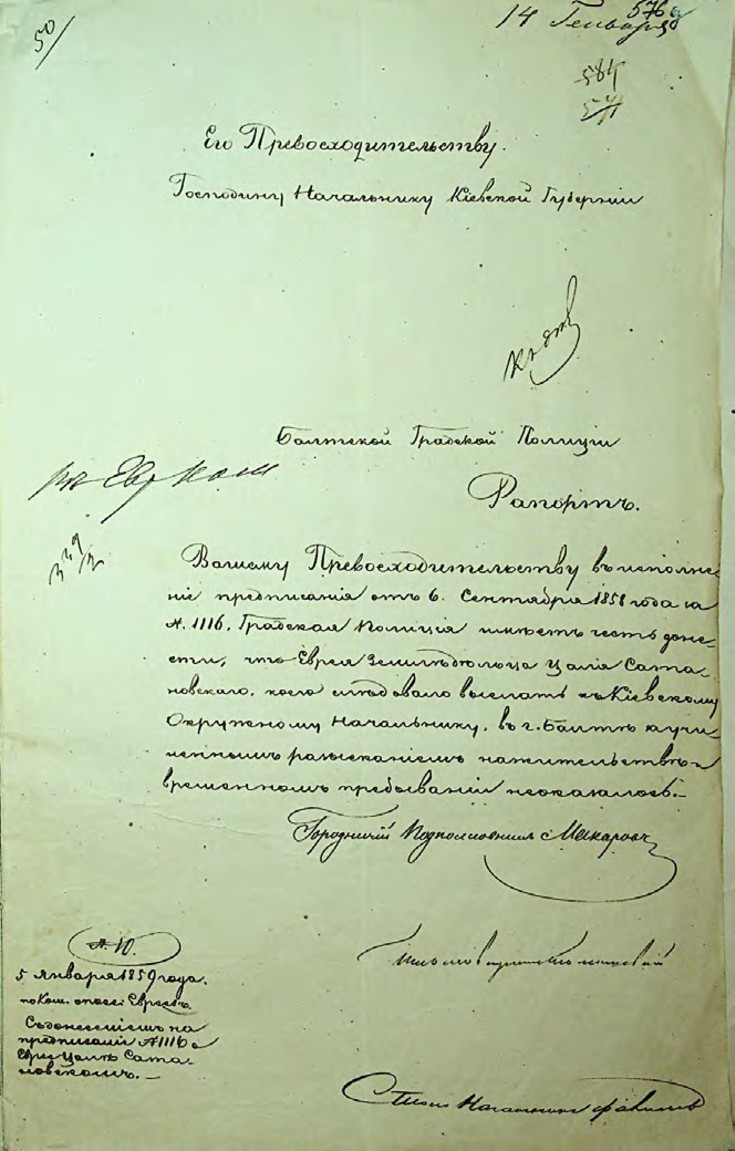 50
14 Генваря
576
584
571
Его Превосходительству.
Господину Начальнику Кіевской Губерніи
къ дѣлу
Балтской Градской Полиціи
по Евр Ком
Рапортъ.
339/2
Вашему Превосходительству въ исполне-
ніе предписанія отъ 6. Сентября 1858 года за
№. 1116, Градская Полиція имѣетъ честь доне-
сти, что Еврея Земледѣльца Цаля Сата-
новскаго, коего слѣдовало выслать къ Кіевскому
Окружному Начальнику, въ г. Балтѣ по учи-
ненномъ розысканіемъ на жительствѣ и
временномъ пребываніи неоказалось.–
Городничій Подполковникъ Макаровъ
№. 10.
5 Января 1859 года.
по Ком. описи Евреевъ.
Съ донесеніемъ на
предписаніе №1116 о
Евреѣ Цалѣ Сата-
новскомъ.–
Столо Начальникъ